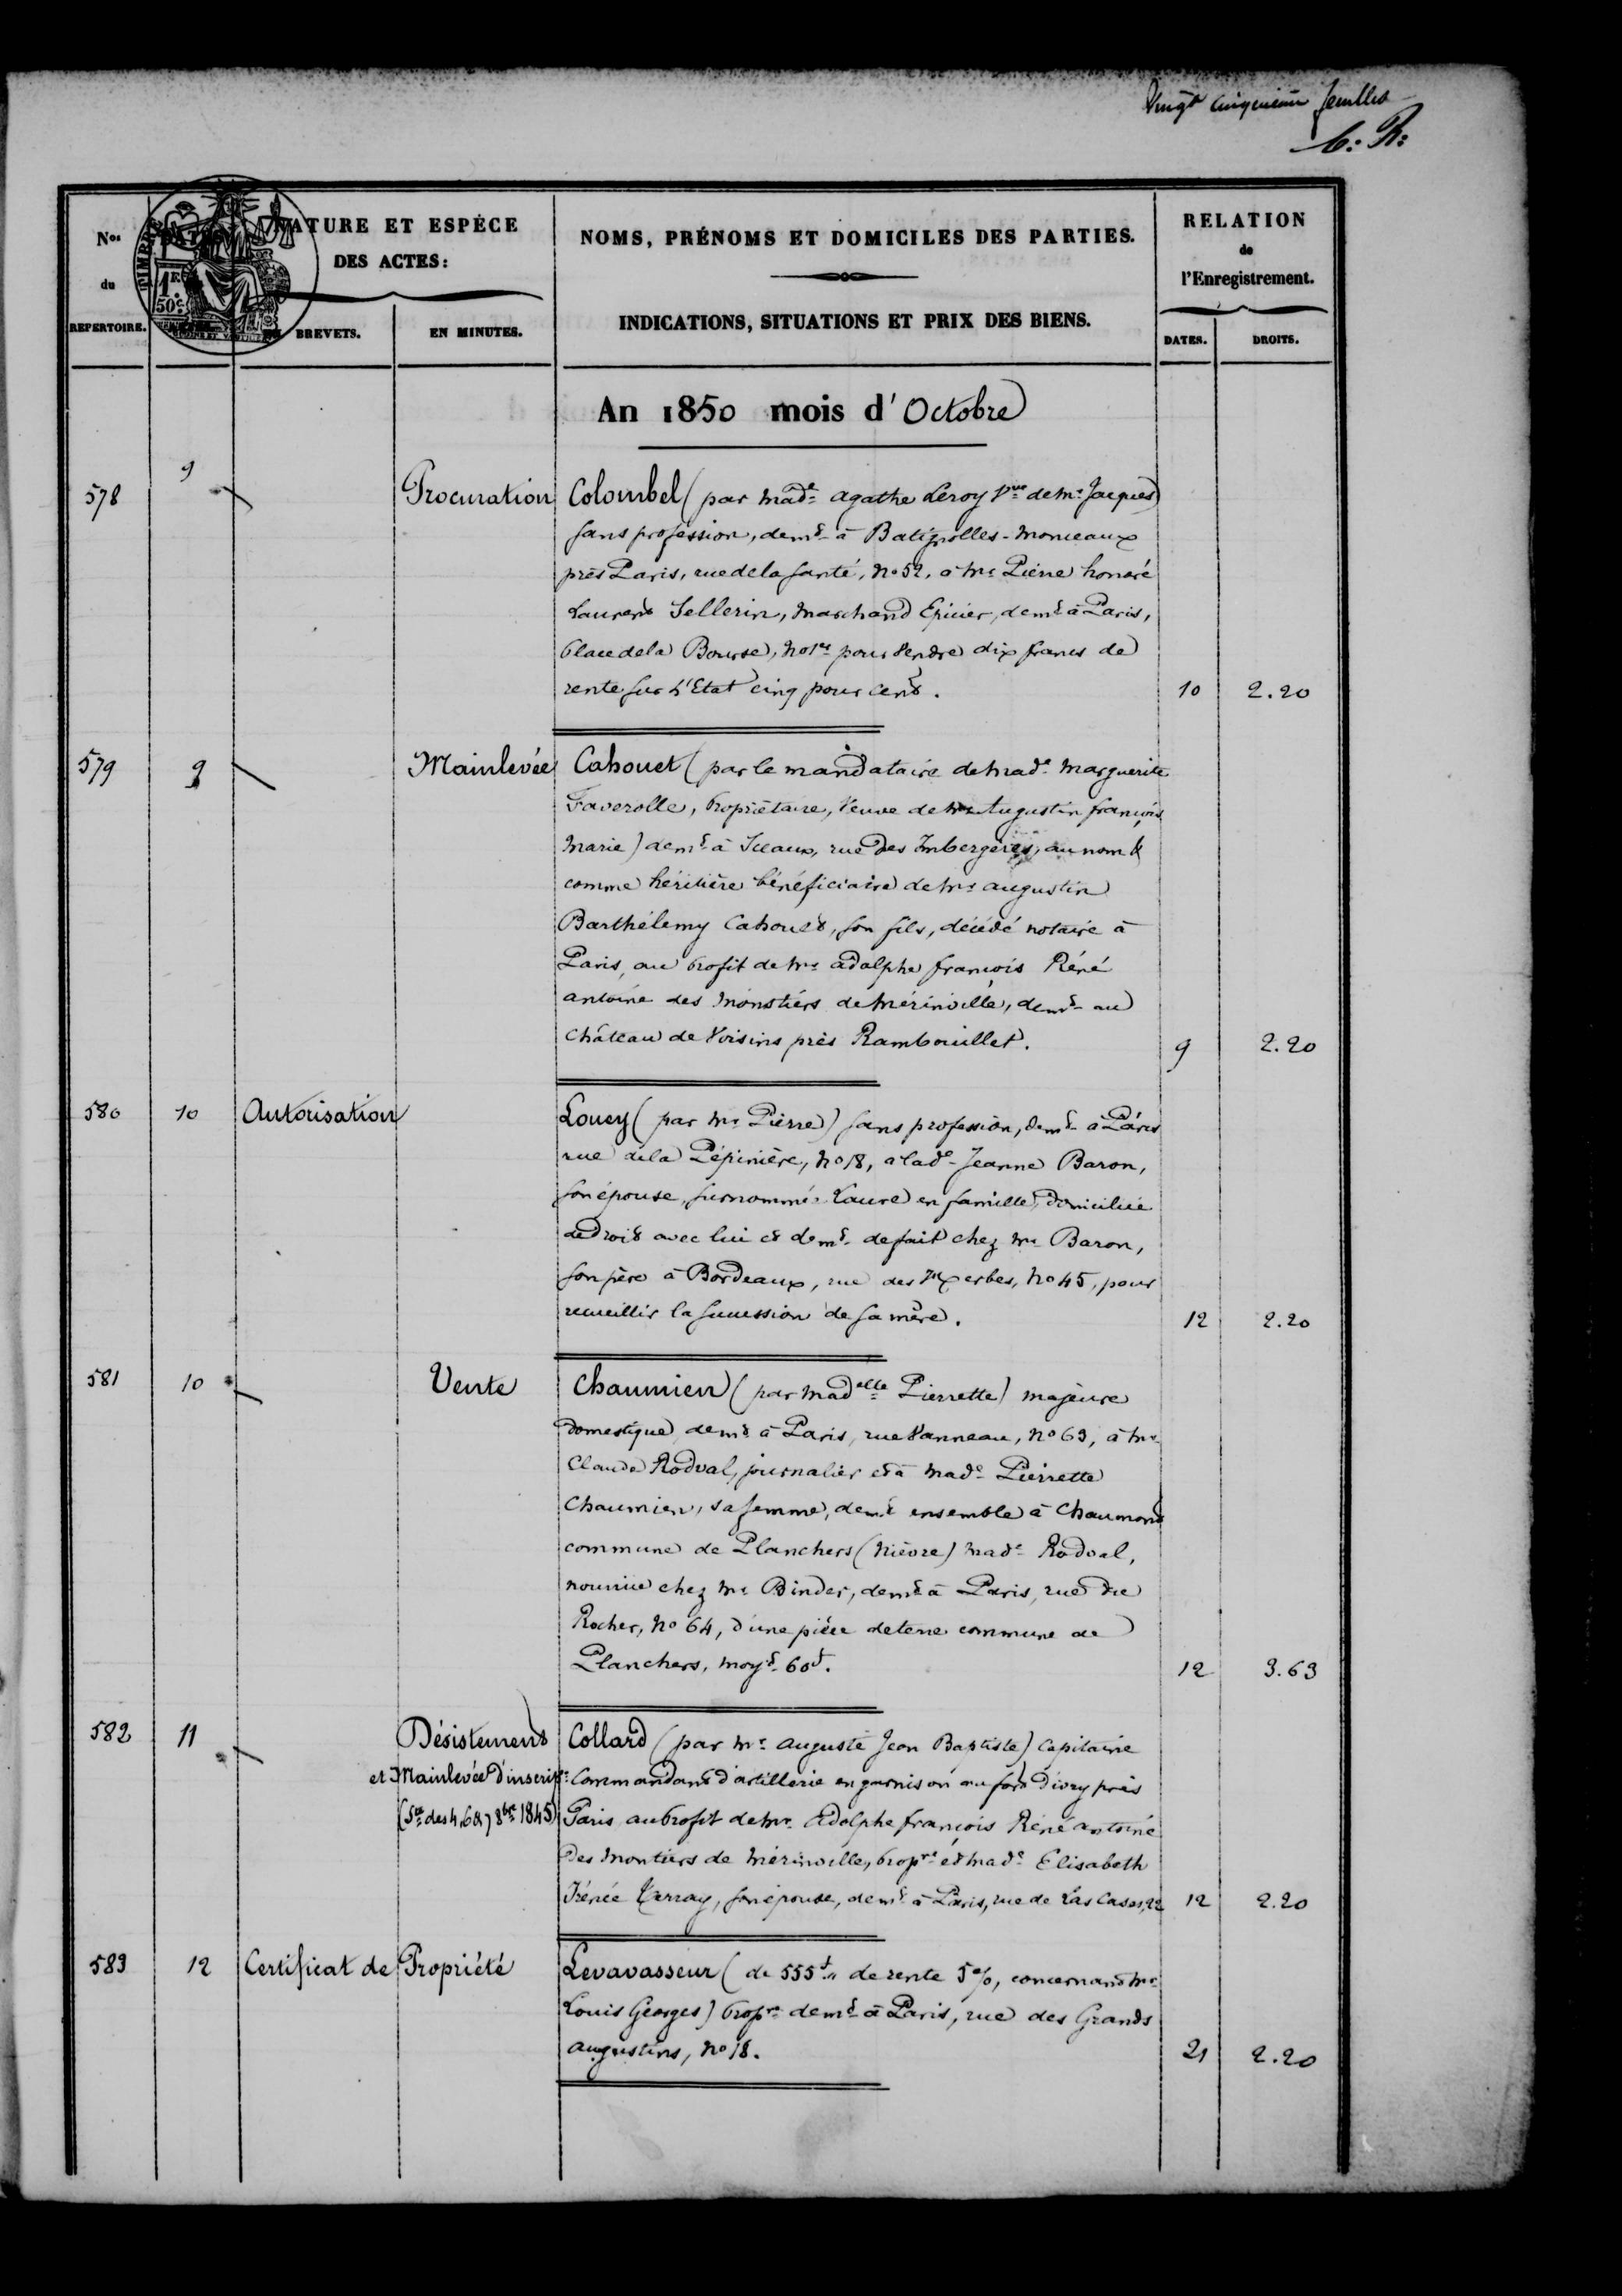 Vingt cinquième feuillet
C: R:
Nos du REPERTOIRE.
NATURE ET ESPÈCE DES ACTES:
BREVETS. EN MINUTES.
NOMS, PRÉNOMS ET DOMICILES DES PARTIES.
INDICATIONS, SITUATIONS ET PRIX DES BIENS.
RELATION de l'Enregistrement.
DATES. DROITS.
TIMBRE
1F. 50c.
An 1850 mois d'Octobre
578 9 Procuration Colombel (par Made Agathe Leroy Vve de Mr Jacques)
sans profession, demt à Batignolles-Monceaux
près Paris, rue de la Santé, No 52, à Mr Pierre honoré
Laurent Sellerin, Marchand Epicier, demt à Paris,
Place de la Bourse, No pour vendre dix francs de
rente sur l'Etat cinq pour cent. 10 2.20
579 9 Mainlevée Cahouet (par le mandataire de Made Marguerite
Faverolle, Propriétaire, Veuve de Mr Augustin françois
Marie) demt à Sceaux, rue des Imbergères, au nom &
comme héritière bénéficiaire de Mr augustin
Barthélemy Cahouet, son fils, décédé notaire à
Paris, au profit de Mr adolphe francois Réné
antoine des Monstiers de Mérinville, demt au
Château de Voisins près Rambouillet. 9 2.20
580 10 Autorisation Loucy (par Mr Pierre) sans profession, demt à Paris
rue de la Pépinière, No 18, à lade Jeanne Baron,
son épouse, surnommée Laure en famille, domiciliée
de droit avec lui et demt de fait chez Mr Baron,
son père à Bordeaux, rue des herbes, No 45, pour
recueillir la succession de sa mère. 12 2.20
581 10 Vente Chaumien (par Madelle Pierrette) majeure
domestique demt à Paris, rue Vanneau, No 63, à Mr
Claude Rodval, journalier et à Made Pierrette
Chaumien, sa femme, demt ensemble à Chaumont
commune de Planchers (Nièvre) Made Rodval,
nourrice chez Mr Binder, demt à Paris, rue du
Rocher, No 64, d'une pièce de terre commune de
Planchers, moyt 60f. 12 3.63
582 11 Désistement Collard (par Mr Auguste Jean Baptiste) Capitaine
et Mainlevée d'inscrip: Commandant d'artillerie en garnison au fort d'ivry près
(Ste des 4, 6 & 7 8bre 1845) Paris au profit de Mr Adolphe françois Réné antoine
Des Montiers de Mérinville, propre et Made Elisabeth
Irénée Terray, son épouse, demt à Paris, rue de Las Cases, 22 12 2.20
583 12 Certificat de Propriété Levavasseur (de 555f" de rente 5%, concernant Mr
Louis Georges) propre demt à Paris, rue des Grands
augustins, No 18. 21 2.20